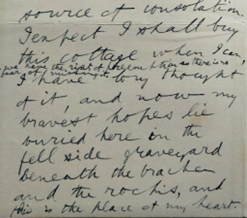 source of consolation.
I expect I shall buy
this cottage when I can,
we have the right of
fear of
I have long thought
of it, and now my
bravest hopes lie
buried here in the
fell side graveyard
beneath the bracken
and the rocks, and
this is the place of my heart.